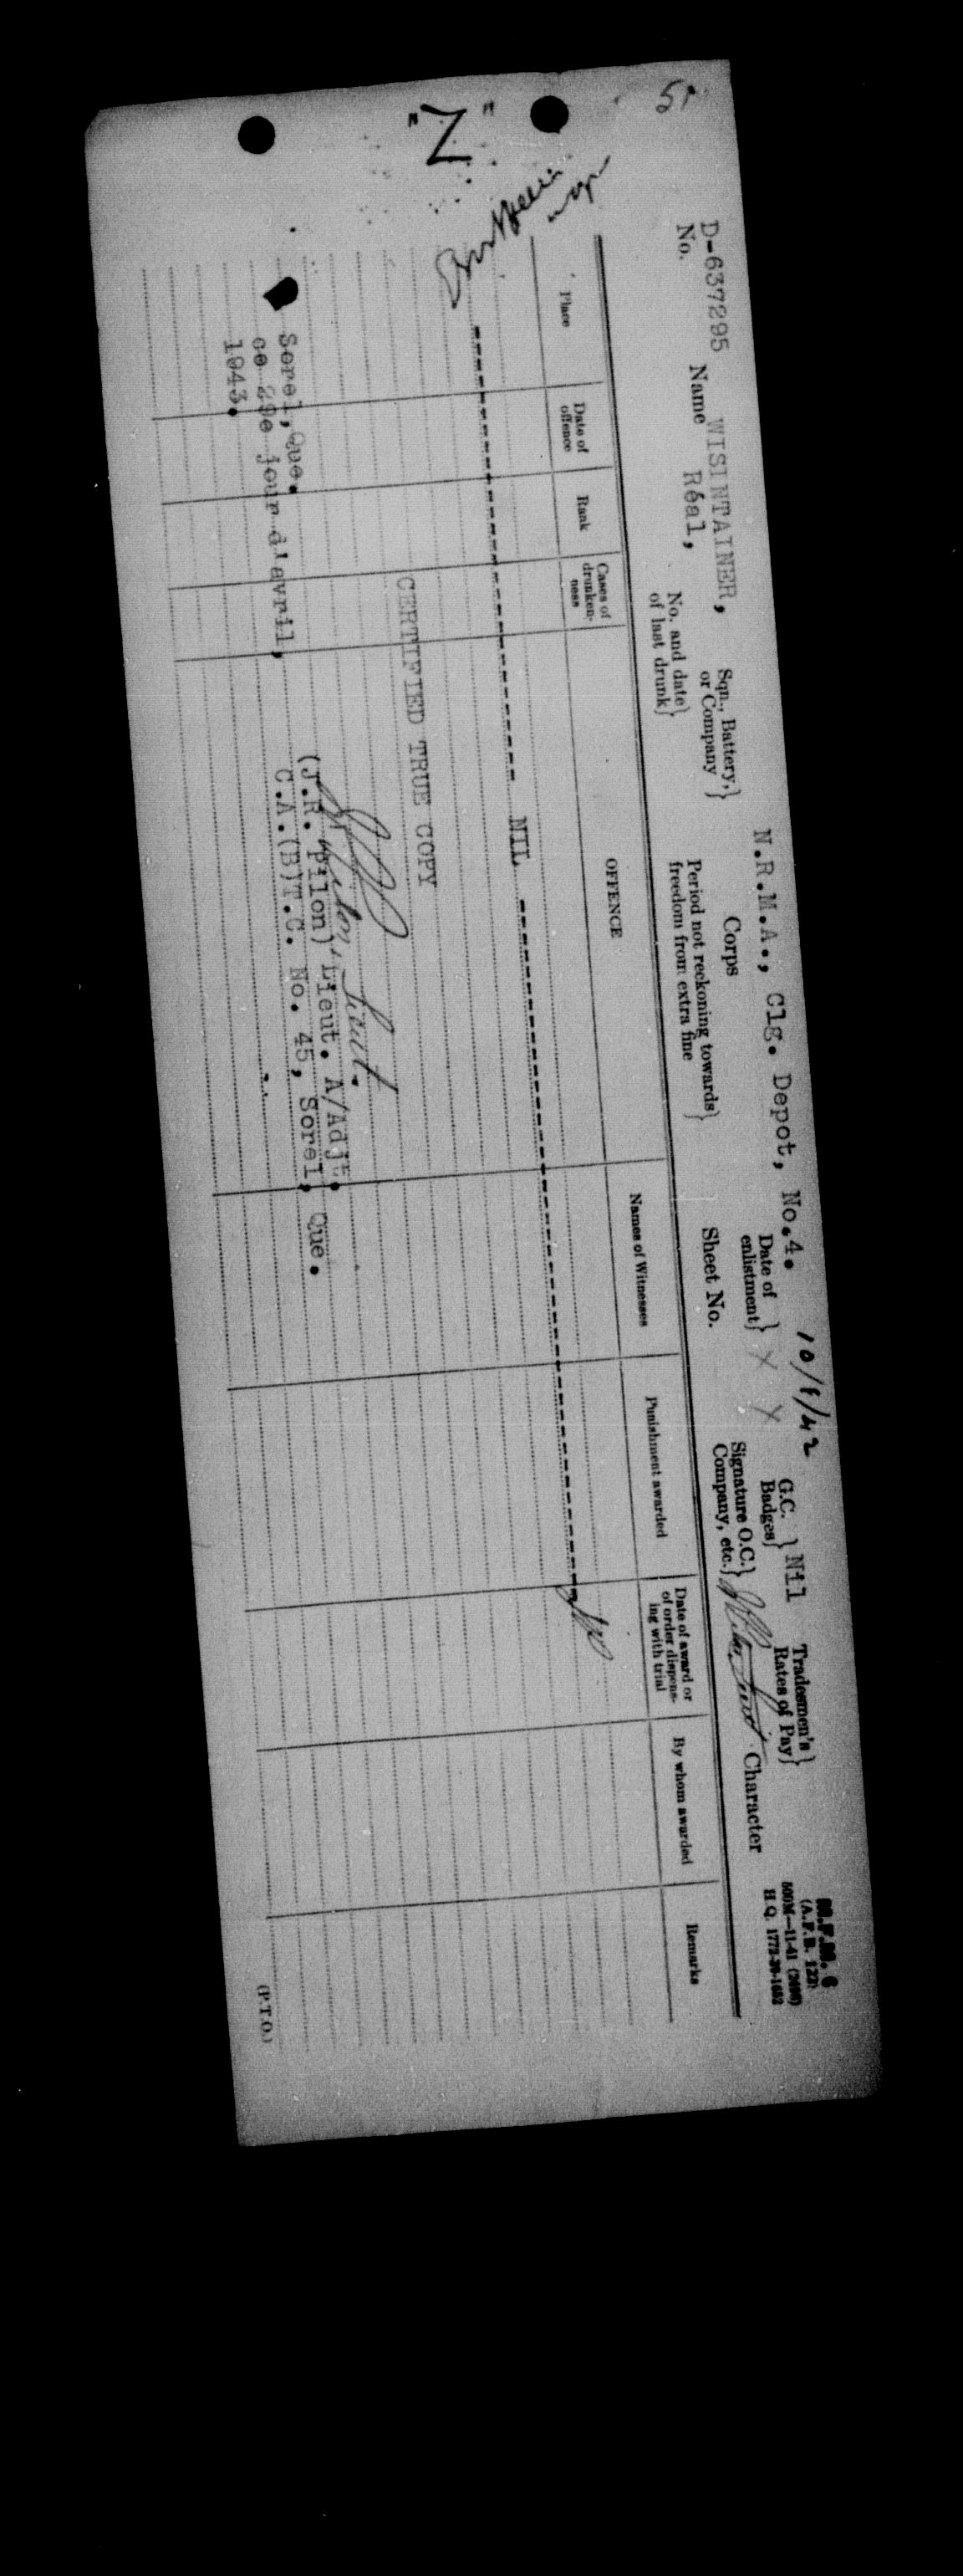 M.F.M. 6
(A.F.B. 122)
500M—11-41 (2690)
H.Q. 1772-39-1652
N.R.M.A., Clg. Depot, No.4. 10/ /42
D-637295 WISINTAINER,
No. Name Réal,
Sqn., Battery, or Company}
Corps
Date of enlistment} X X
G.C. Badges} Nil
Tradesmen's Rates of Pay}
No. and date of last drunk}
Period not reckoning towards freedom from extra fine}
Sheet No.
Signature O.C. Company, etc.} Lieut. Character
Place
Date of offence
Rank
Cases of drunken-ness
OFFENCE
Names of Witnesses
Punishment awarded
Date of award or of order dispens-ing with trial
By whom awarded
Remarks
5.
"Z"
---------- NIL ----------
CERTIFIED TRUE COPY
Lieut.
(J.R. Pilon) Lieut. A/Adjt.
C.A.(B)T.C. No. 45, Sorel, Que.
Sorel, Que.
ce 29e jour d'avril,
1943.
(P.T.O.)